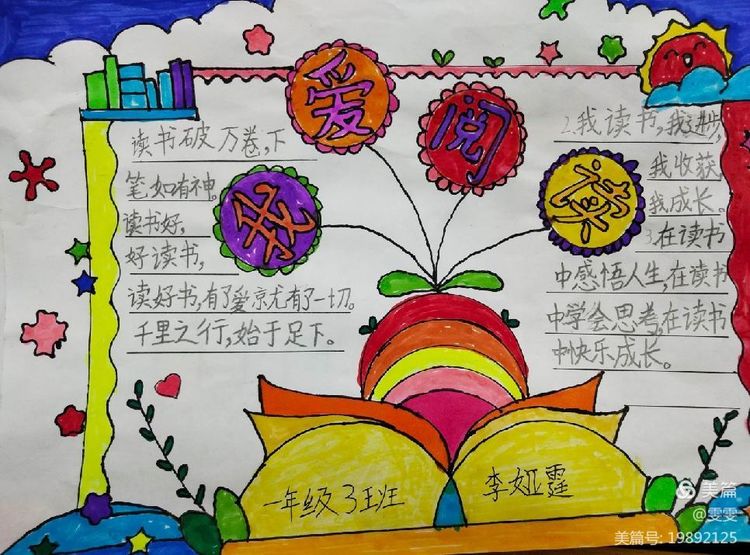 我爱阅读
读书破万卷,下
笔如有神。
读书好,
好读书,
读好书,有了爱京尤有了一切。
千里之行,始于足下。
2.我读书,我进步,
我收获
我成长。
3.在读书
中感悟人生,在读书
中学会思考,在读书
中快乐成长。
一年级3班
李娅霆
美篇
@雯雯
美篇号: 19892125